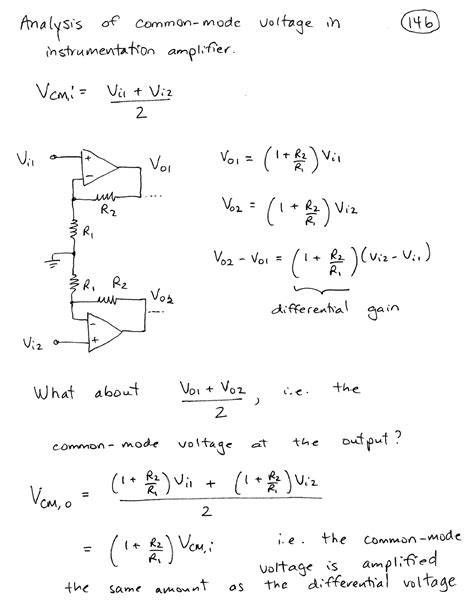 Analysis of common-mode voltage in
146
instrumentation amplifier.
V_CM,i = (V_i1 + V_i2) / 2
V_i1
+
−
V_O1
R_2
....
R_1
V_O1 = (1 + R_2/R_1) V_i1
V_O2 = (1 + R_2/R_1) V_i2
V_O2 − V_O1 = (1 + R_2/R_1)(V_i2 − V_i1)
differential gain
R_1
R_2
V_O2
....
−
+
V_i2
What about (V_O1 + V_O2) / 2, i.e. the
common-mode voltage at the output?
V_CM,O = ((1 + R_2/R_1) V_i1 + (1 + R_2/R_1) V_i2) / 2
= (1 + R_2/R_1) V_CM,i i.e. the common-mode
voltage is amplified
the same amount as the differential voltage